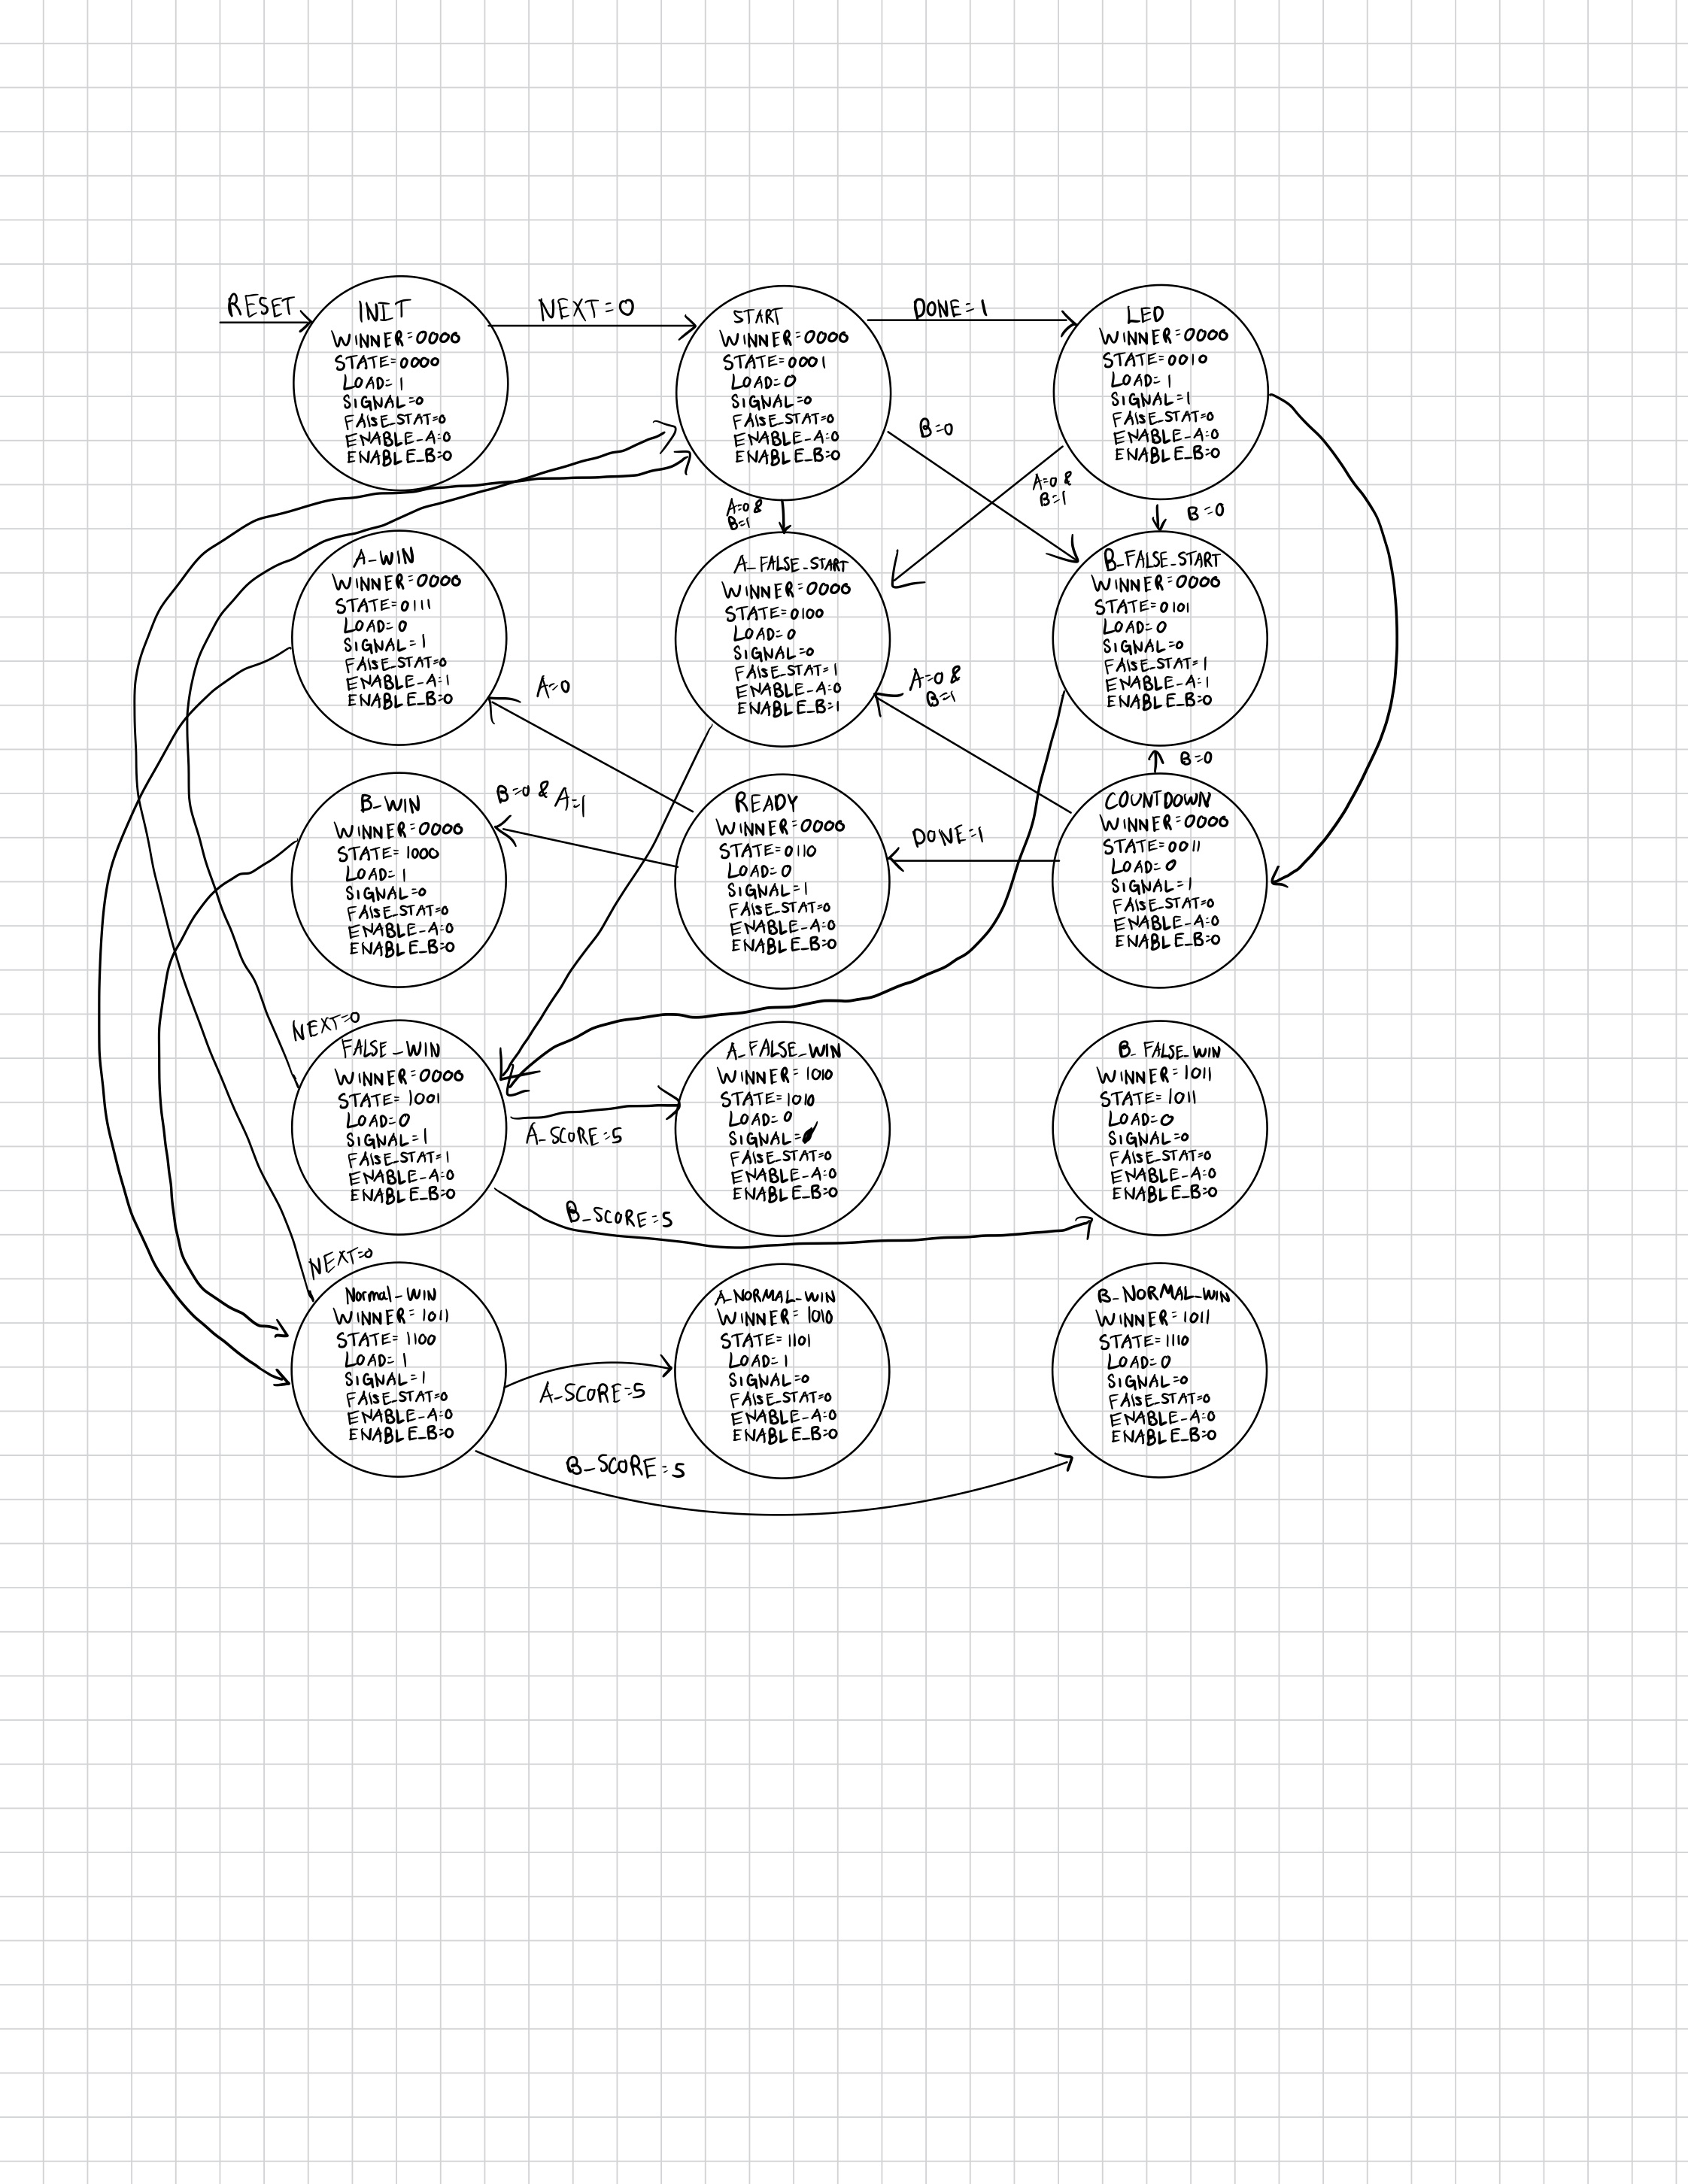 RESET
INIT
WINNER=0000
STATE=0000
LOAD=1
SIGNAL=0
FALSE_STAT=0
ENABLE_A=0
ENABLE_B=0
NEXT=0
START
WINNER=0000
STATE=0001
LOAD=0
SIGNAL=0
FALSE_STAT=0
ENABLE_A=0
ENABLE_B=0
DONE=1
LED
WINNER=0000
STATE=0010
LOAD=1
SIGNAL=1
FALSE_STAT=0
ENABLE_A=0
ENABLE_B=0
B=0
A=0 &
B=1
A=0 &
B=1
B=0
A-WIN
WINNER=0000
STATE=0111
LOAD=0
SIGNAL=1
FALSE_STAT=0
ENABLE_A=1
ENABLE_B=0
A=0
A_FALSE_START
WINNER=0000
STATE=0100
LOAD=0
SIGNAL=0
FALSE_STAT=1
ENABLE_A=0
ENABLE_B=1
A=0 &
B=1
B_FALSE_START
WINNER=0000
STATE=0101
LOAD=0
SIGNAL=0
FALSE_STAT=1
ENABLE_A=1
ENABLE_B=0
B=0
B_WIN
WINNER=0000
STATE=1000
LOAD=1
SIGNAL=0
FALSE_STAT=0
ENABLE_A=0
ENABLE_B=0
B=0 & A=1
READY
WINNER=0000
STATE=0110
LOAD=0
SIGNAL=1
FALSE_STAT=0
ENABLE_A=0
ENABLE_B=0
DONE=1
COUNTDOWN
WINNER=0000
STATE=0011
LOAD=0
SIGNAL=1
FALSE_STAT=0
ENABLE_A=0
ENABLE_B=0
NEXT=0
FALSE_WIN
WINNER=0000
STATE=1001
LOAD=0
SIGNAL=1
FALSE_STAT=1
ENABLE_A=0
ENABLE_B=0
A_SCORE=5
A_FALSE_WIN
WINNER=1010
STATE=1010
LOAD=0
SIGNAL=0
FALSE_STAT=0
ENABLE_A=0
ENABLE_B=0
B_FALSE_WIN
WINNER=1011
STATE=1011
LOAD=0
SIGNAL=0
FALSE_STAT=0
ENABLE_A=0
ENABLE_B=0
B_SCORE=5
NEXT=0
Normal_WIN
WINNER=1011
STATE=1100
LOAD=1
SIGNAL=1
FALSE_STAT=0
ENABLE_A=0
ENABLE_B=0
A_SCORE=5
A_NORMAL_WIN
WINNER=1010
STATE=1101
LOAD=1
SIGNAL=0
FALSE_STAT=0
ENABLE_A=0
ENABLE_B=0
B_NORMAL_WIN
WINNER=1011
STATE=1110
LOAD=0
SIGNAL=0
FALSE_STAT=0
ENABLE_A=0
ENABLE_B=0
B_SCORE=5